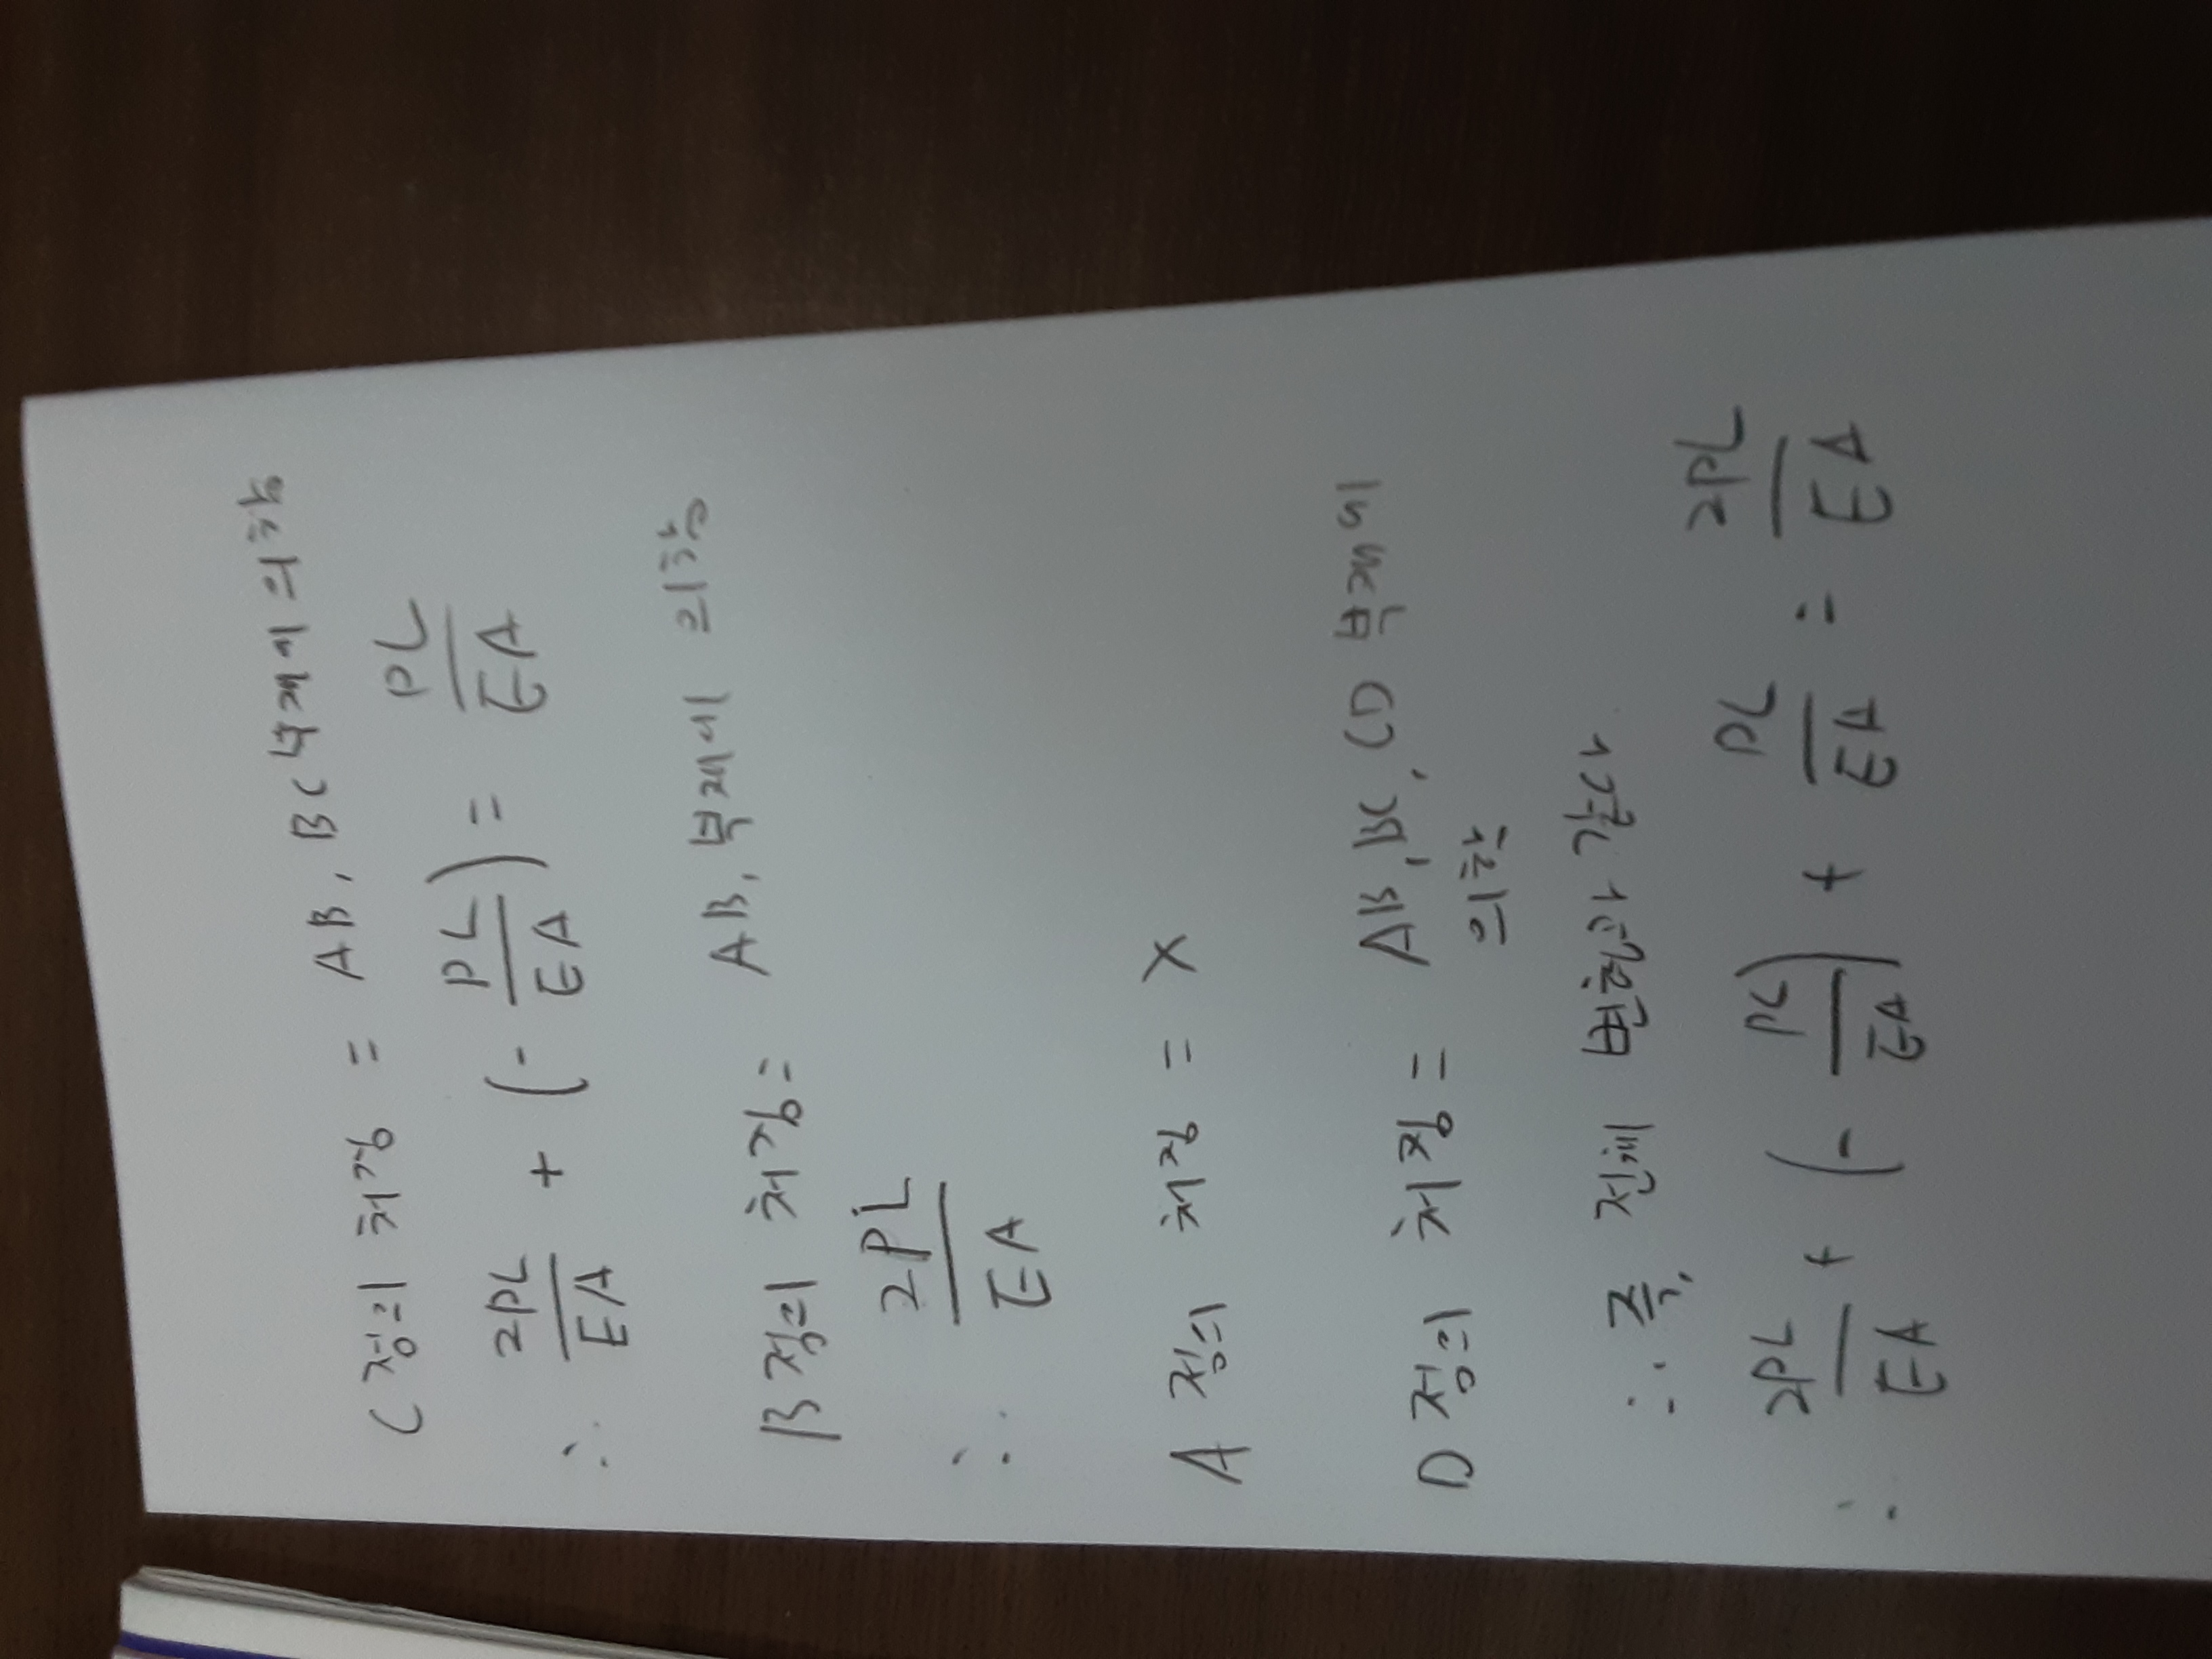 C점의 처짐 = AB, BC부재에 의함
∴ 2PL/EA + (- PL/EA) = PL/EA
B점의 처짐 = AB, 부재에 의함
∴ 2PL/EA
A 점의 처짐 = X
D점의 처짐 = AB, BC, CD 부재에
의함
∴ 즉, 전체 변형량과 같다
∴ 2PL/EA + (- PL/EA) + PL/EA = 2PL/EA